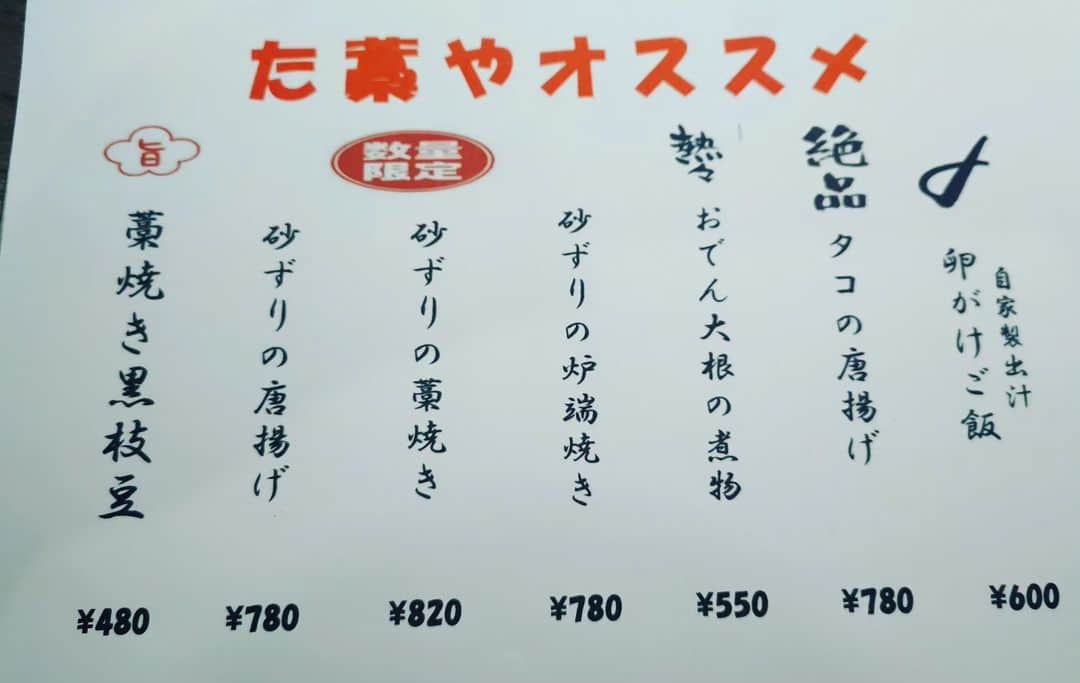 た藁やオススメ
〆
自家製出汁
卵がけご飯
¥600
絶品
タコの唐揚げ
¥780
熱々
おでん大根の煮物
¥550
砂ずりの炉端焼き
¥780
数量
限定
砂ずりの藁焼き
¥820
砂ずりの唐揚げ
¥780
旨
藁焼き黒枝豆
¥480